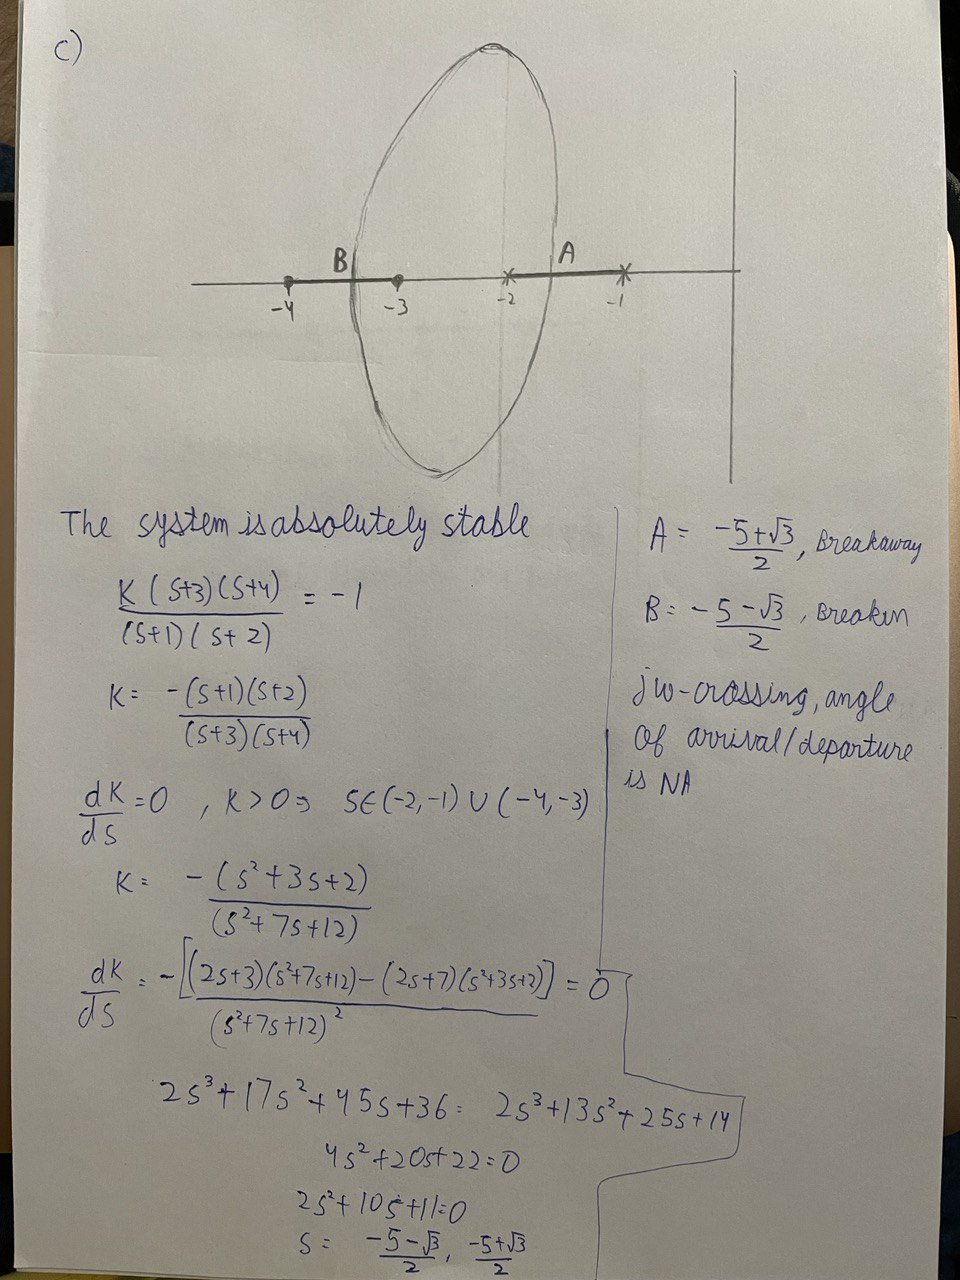 c)
B
A
-4
-3
-2
-1
The system is absolutely stable
K(s+3)(s+4) / (s+1)(s+2) = -1
K = -(s+1)(s+2) / (s+3)(s+4)
dK/ds = 0 , K > 0 ⇒ S∈(-2,-1) ∪ (-4,-3)
K = -(s²+3s+2) / (s²+7s+12)
dK/ds = -[(2s+3)(s²+7s+12)-(2s+7)(s²+3s+2)] / (s²+7s+12)² = 0
2s³+17s²+45s+36 = 2s³+13s²+25s+14
4s²+20s+22=0
2s²+10s+11=0
s = -5-√3 / 2, -5+√3 / 2
A = -5+√3 / 2, Breakaway
B = -5-√3 / 2, Breakin
jw-crossing, angle
of arrival/departure
is NA